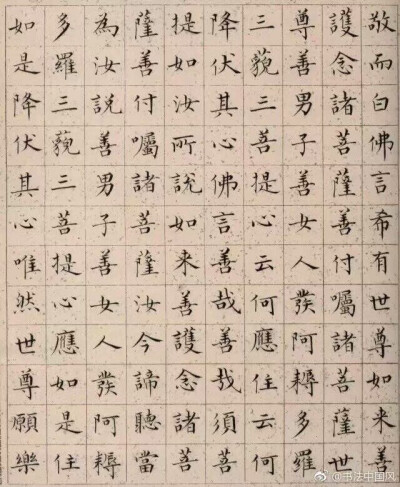 敬而白佛言希有世尊如來善
護念諸菩薩善付囑諸菩薩世
尊善男子善女人發阿耨多羅
三藐三菩提心云何應住云何
降伏其心佛言善哉善哉須菩
提如汝所說如來善護念諸菩
薩善付囑諸菩薩汝今諦聽當
為汝說善男子善女人發阿耨
多羅三藐三菩提心應如是住
如是降伏其心唯然世尊願樂
@书法中国风